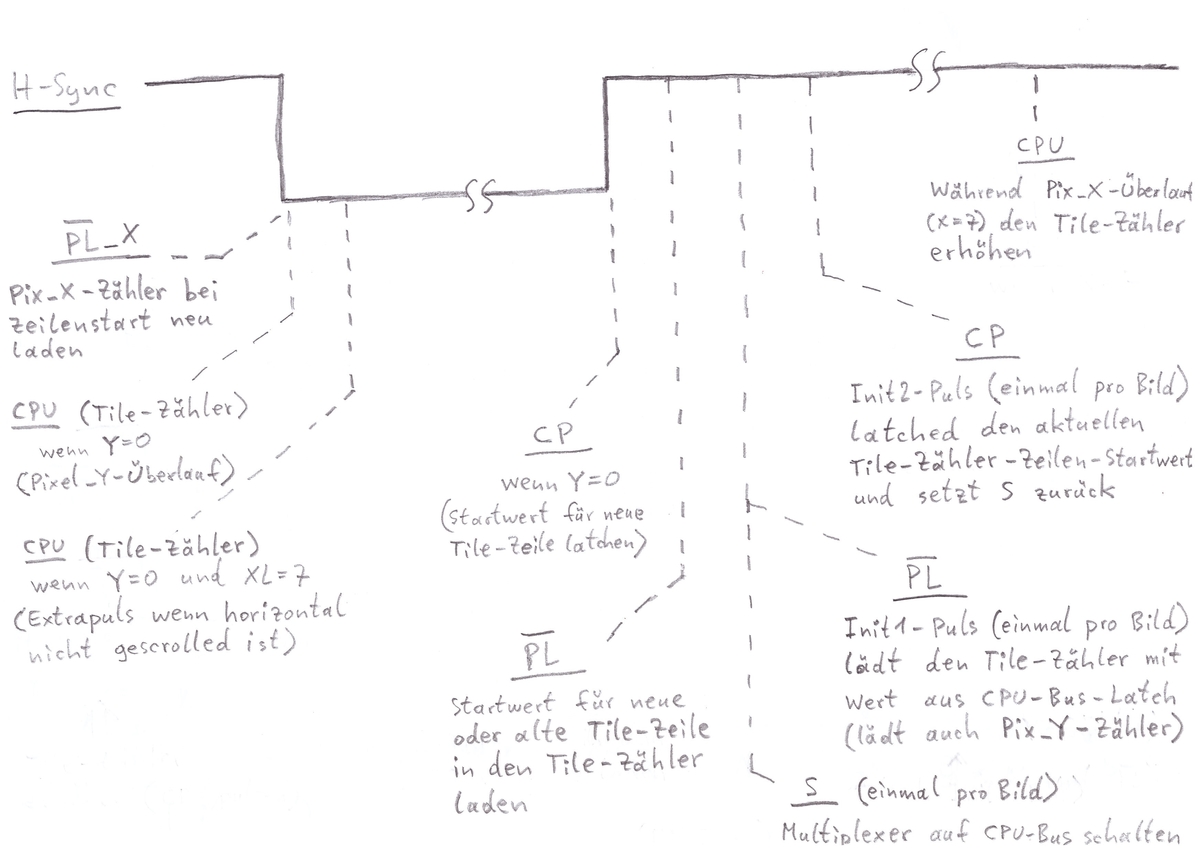 H-Sync
PL_X
Pix_X-Zähler bei
Zeilenstart neu
laden
CPU (Tile-Zähler)
wenn Y=0
(Pixel_Y-Überlauf)
CPU (Tile-Zähler)
wenn Y=0 und XL=7
(Extrapuls wenn horizontal
nicht gescrolled ist)
CP
wenn Y=0
(Startwert für neue
Tile-Zeile latchen)
PL
Startwert für neue
oder alte Tile-Zeile
in den Tile-Zähler
laden
CPU
Während Pix_X-Überlauf
(X=7) den Tile-Zähler
erhöhen
CP
Init2-Puls (einmal pro Bild)
latched den aktuellen
Tile-Zähler-Zeilen-Startwert
und setzt S zurück
PL
Init1-Puls (einmal pro Bild)
lädt den Tile-Zähler mit
Wert aus CPU-Bus-Latch
(lädt auch Pix_Y-Zähler)
S (einmal pro Bild)
Multiplexer auf CPU-Bus schalten